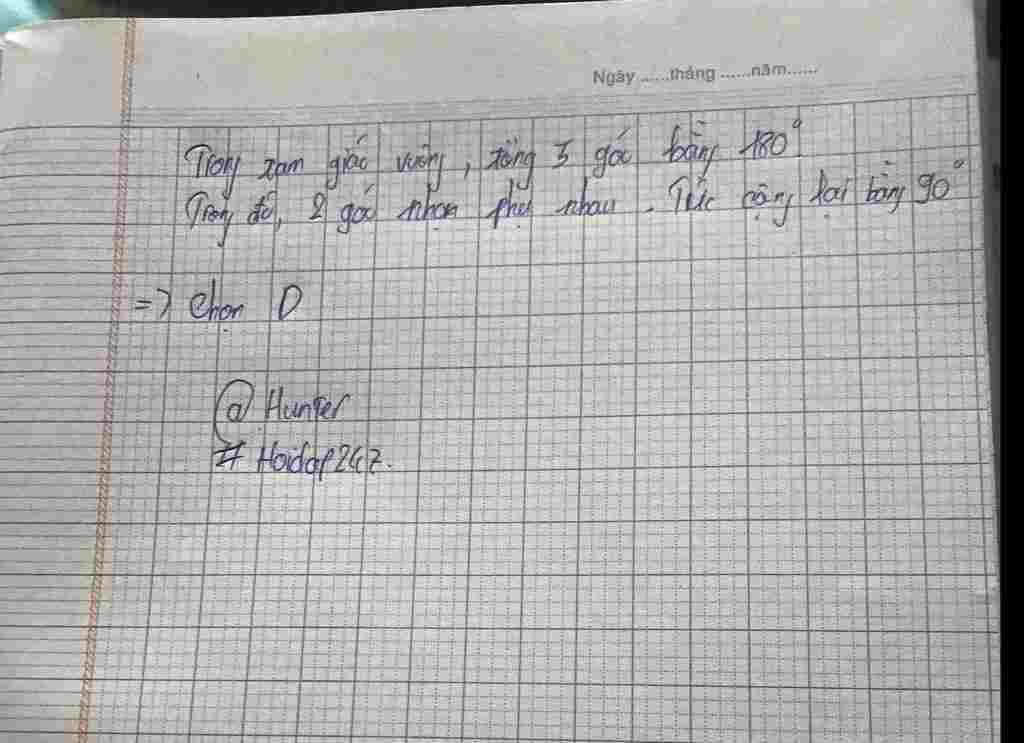 Ngày ......tháng ......năm......
Trong tam giác vuông, tổng 3 góc bằng 180°
Trong đó, 2 góc nhọn phụ nhau. Tức cộng lại bằng 90°
=> Chọn D
@ Hunter
# Hoidap247.